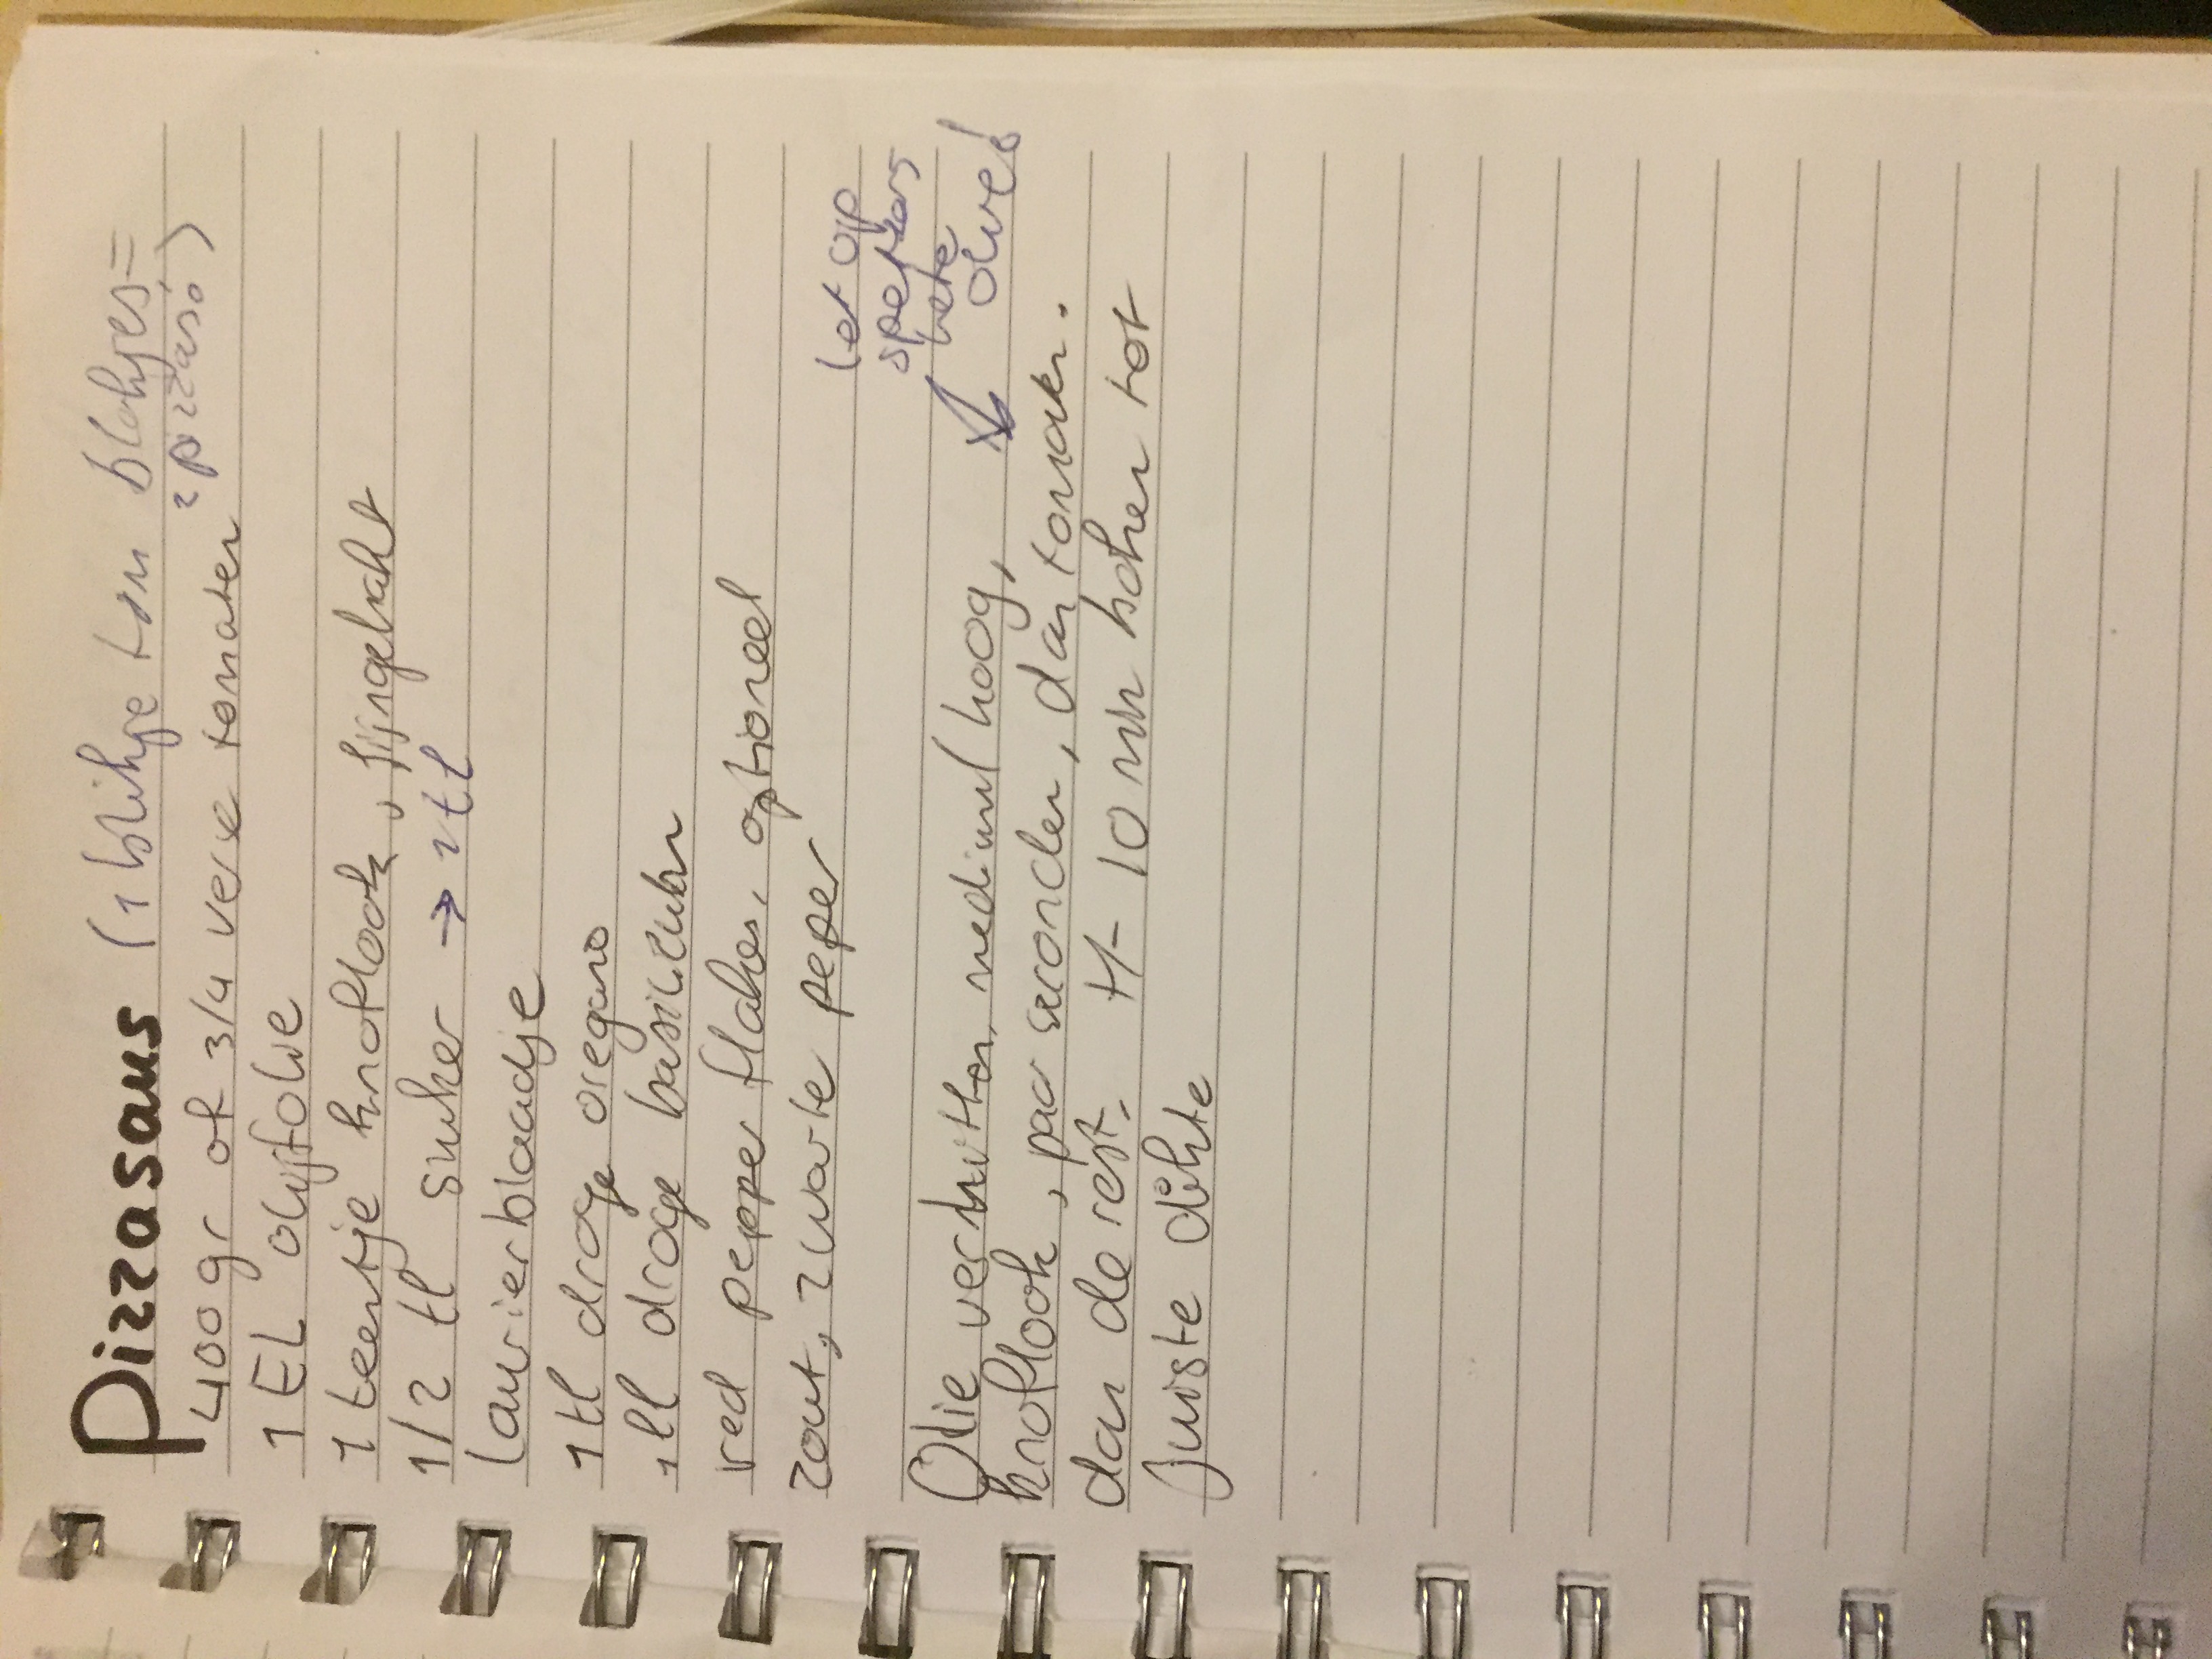 Pizzasaus (1 blikje tom blokjes =
2 pizzas!)
400 gr of 3/4 verse tomaten
1 EL olijfolie
1 teentje knoflook, fijngehakt
1/2 tl suiker → 1tl
laurierblaadje
1 tl droge oregano
1 tl droge basilicum
red pepper flakes, optioneel
zout, zwarte peper
let op
spetters
hete
olie!
Olie verhitten, medium/hoog,
knoflook, paar seconden, dan tomaten.
dan de rest. +/- 10 min koken tot
juiste dikte